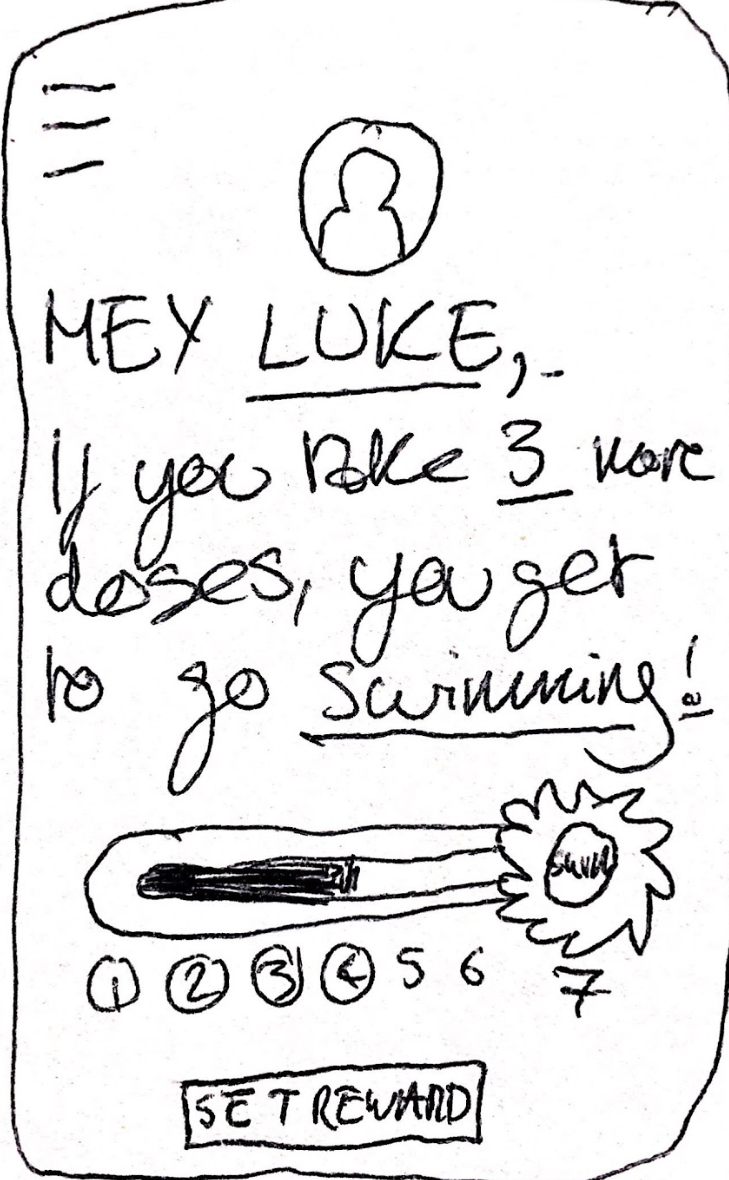 HEY LUKE,
If you take 3 more
doses, you get
to go swimming!
swim
1 2 3 4 5 6 7
SET REWARD